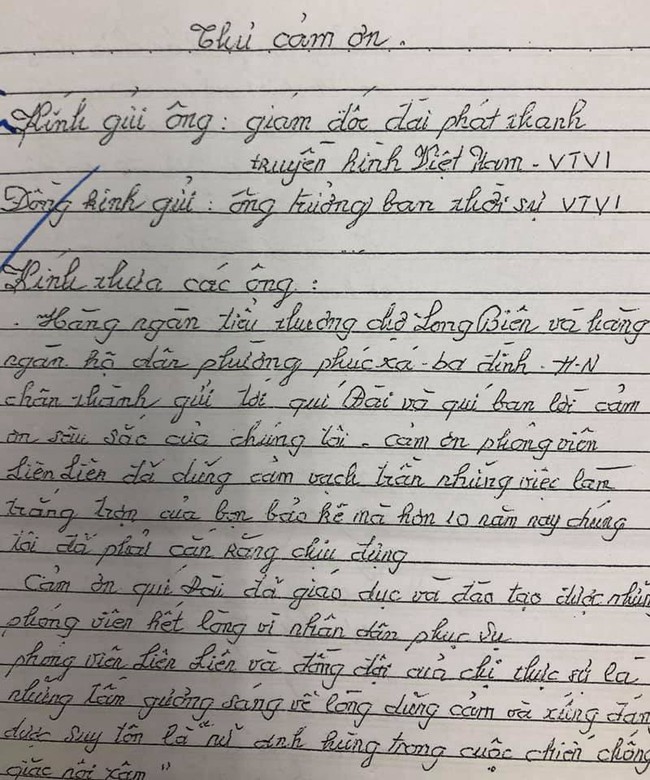 Thư cảm ơn.
Kính gửi ông: giám đốc đài phát thanh
truyền hình Việt Nam - VTV1
Đồng kính gửi: ông trưởng ban thời sự VTV1
Kính thưa các ông:
. Hàng ngàn tiểu thương chợ Long Biên và hàng
ngàn hộ dân phường phúc xá - ba đình - H-N
chân thành gửi tới quí Đài và quí ban lời cảm
ơn sâu sắc của chúng tôi. cảm ơn phóng viên
Liên Liên đã dũng cảm vạch trần những việc làm
trắng trợn của bọn bảo kê mà hơn 10 năm nay chúng
tôi đã phải cắn răng chịu đựng
Cảm ơn quí Đài đã giáo dục và đào tạo được những
phóng viên hết lòng vì nhân dân phục sụ
phóng viên Liên Liên và đồng đội của chị thực sự là
những tấm gương sáng về lòng dũng cảm và xứng đáng
được suy tôn là "nữ anh hùng trong cuộc chiến chống
giặc nội xâm"